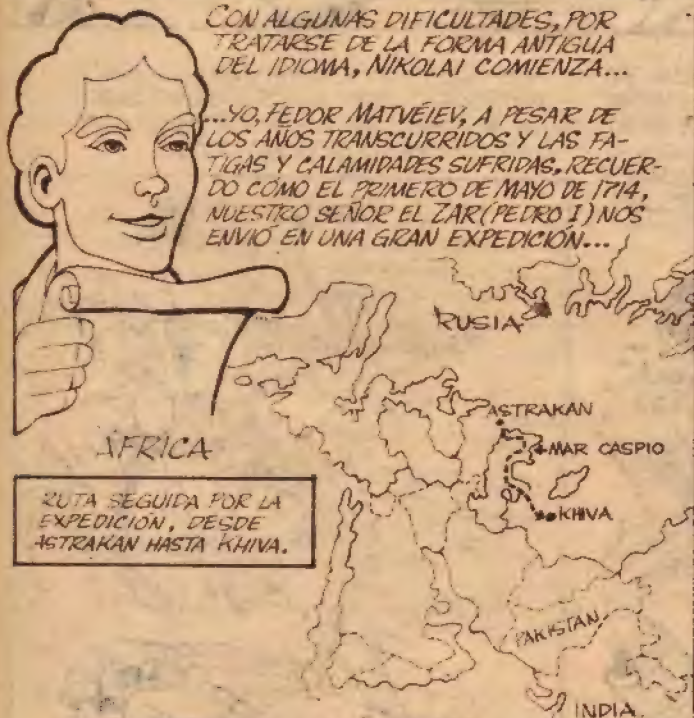 CON ALGUNAS DIFICULTADES, POR
TRATARSE DE LA FORMA ANTIGUA
DEL IDIOMA, NIKOLAI COMIENZA...
...YO, FEDOR MATVÉIEV, A PESAR DE
LOS AÑOS TRANSCURRIDOS Y LAS FA-
TIGAS Y CALAMIDADES SUFRIDAS, RECUER-
DO CÓMO EL PRIMERO DE MAYO DE 1714,
NUESTRO SEÑOR EL ZAR (PEDRO I) NOS
ENVIÓ EN UNA GRAN EXPEDICIÓN...
RUSIA
ASTRAKAN
MAR CASPIO
KHIVA
ÁFRICA
RUTA SEGUIDA POR LA
EXPEDICIÓN, DESDE
ASTRAKAN HASTA KHIVA.
PAKISTAN
INDIA